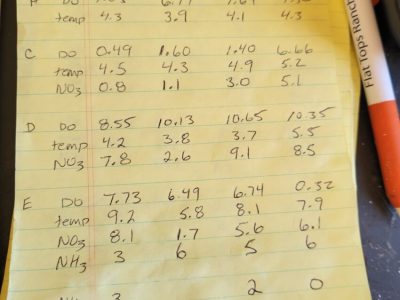 temp 4.3 3.9 4.1 4.3
C DO 0.49 1.60 1.40 6.66
temp 4.5 4.3 4.9 5.2
NO3 0.8 1.1 3.0 5.1
D DO 8.55 10.13 10.65 10.35
temp 4.2 3.8 3.7 5.5
NO3 7.8 2.6 9.1 8.5
E DO 7.73 6.49 6.74 0.32
temp 9.2 5.8 8.1 7.9
NO3 8.1 1.7 5.6 6.1
NH3 3 6 5 6
3 2 0
Flat Tops Ranch